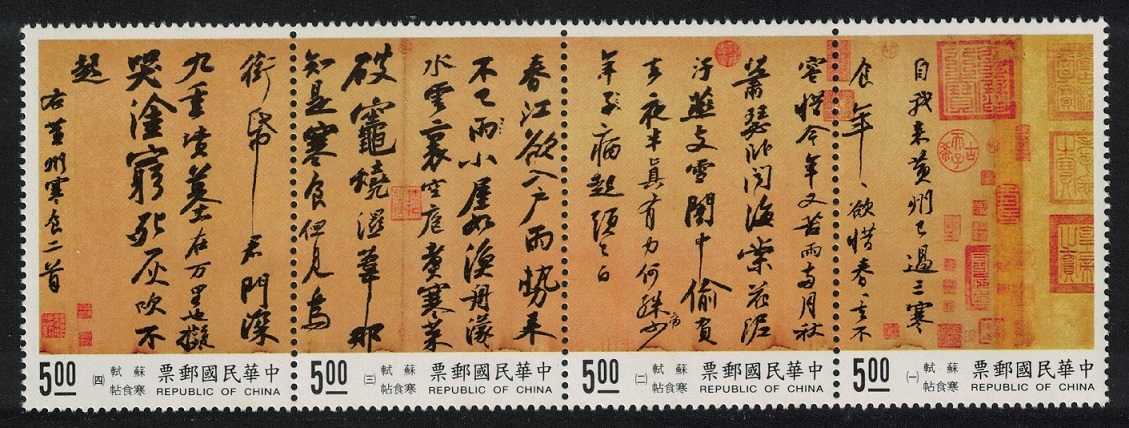 自我来黄州已過三寒
食年〻欲惜春〻去不
容惜今年又苦雨兩月秋
蕭瑟卧聞海棠花泥
汙燕支雪闇中偷負
去夜半真有力何殊少
病
年子病起頭已白
春江欲入户雨勢来
不已雨小屋如漁舟濛〻
水雲裏空庖煮寒菜
破竈燒濕葦那
知是寒食但見烏
銜帋君門深
九重墳墓在万里也擬
哭塗窮死灰吹不
起
右黄州寒食二首
中華民國郵票
REPUBLIC OF CHINA
蘇軾
寒食帖
(一)
5.00
中華民國郵票
REPUBLIC OF CHINA
蘇軾
寒食帖
(二)
5.00
中華民國郵票
REPUBLIC OF CHINA
蘇軾
寒食帖
(三)
5.00
中華民國郵票
REPUBLIC OF CHINA
蘇軾
寒食帖
(四)
5.00